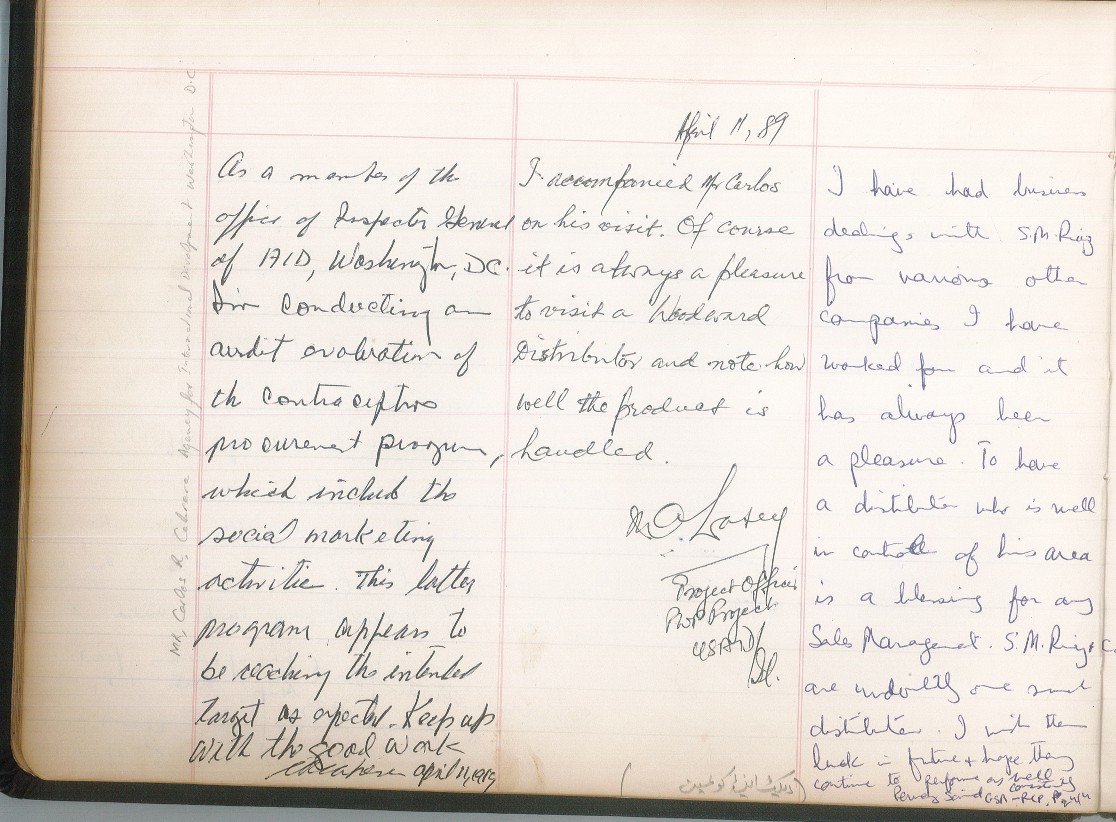 MR, Carlos R. Cabrera Agency for International Development Washington D.C.
As a member of the
office of Inspector General
of AID, Washington, D.C.
I'm conducting an
audit evaluation of
th contraceptive
procurement program,
which includ the
social marketing
activities. This latter
program appears to
be reaching the intended
target as expected. Keep up
with the good work
april 11, 1989
April 11, 89
I accompanied Mr Carlos
on his visit. Of course
it is always a pleasure
to visit a Woodward
Distributor and note how
well the product is
handled.
Project Officer
PWP Project
USAID/
I have had business
dealings with S.M Riaz
from various other
companies I have
worked for and it
has always been
a pleasure. To have
a distributor who is well
in control of his area
is a blessing for any
Sales Management. S.M. Riaz & Co
are undoubtedly one such
distributor. I wish them
luck in future & hope they
continue to perform as well
consistently
Pervez Said GSM-RCP,